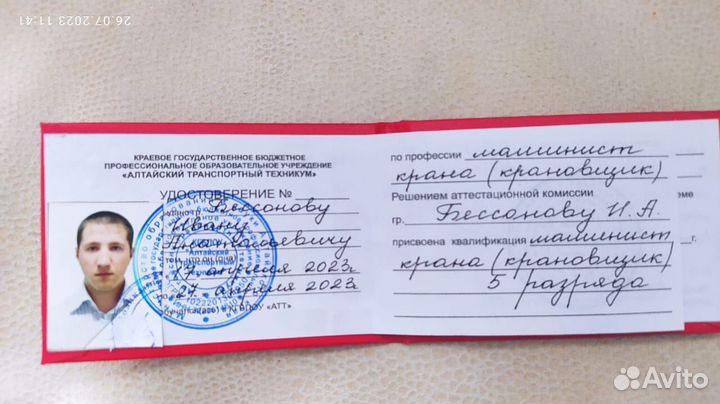 26.07.2023 11:41
КРАЕВОЕ ГОСУДАРСТВЕННОЕ БЮДЖЕТНОЕ
ПРОФЕССИОНАЛЬНОЕ ОБРАЗОВАТЕЛЬНОЕ УЧРЕЖДЕНИЕ
«АЛТАЙСКИЙ ТРАНСПОРТНЫЙ ТЕХНИКУМ»
УДОСТОВЕРЕНИЕ №
Бессонову
Ивану
Анатольевичу
том, что он (она)
17 апреля 2023г
27 апреля 2023г
обучался(ась) в КГБПОУ «АТТ»
Алтайский
транспортный
по профессии машинист
крана (крановщик)
Решением аттестационной комиссии
гр. Бессонову И. А.
присвоена квалификация машинист
крана (крановщик)
5 разряда
еме
г.
Avito